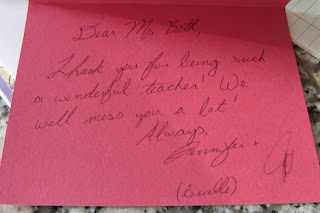 Dear Ms. Beth,
Thank you for being such
a wonderful teacher! We
will miss you a lot!
Always,
Jennifer +